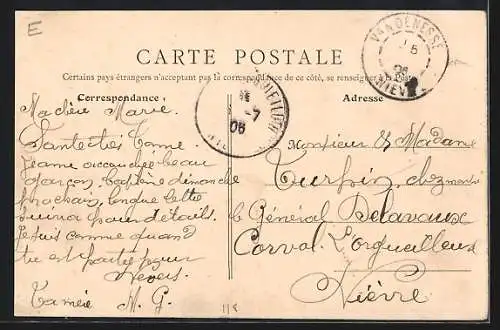 E
CARTE POSTALE
Certains pays étrangers n'acceptant pas la correspondance de ce côté, se renseigner à la Poste
Correspondance
Adresse
VANDENESSE
NIÈVRE
06
Ma chère Marie.
Santé très bonne
Jeanne accouchée beau
garçon, baptême dimanche
prochain, longue lettre
suivra pour détails.
Je suis comme quand
tu es partie pour
Nevers.
Ta mère M. G.
Monsieur & Madame
Turpin, chez monsr
le Général Delavaux
Corval L'Orgueilleux
Nièvre